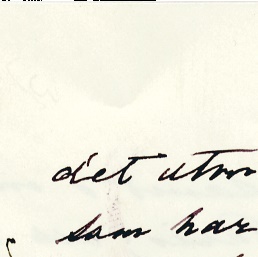 det utm
som har